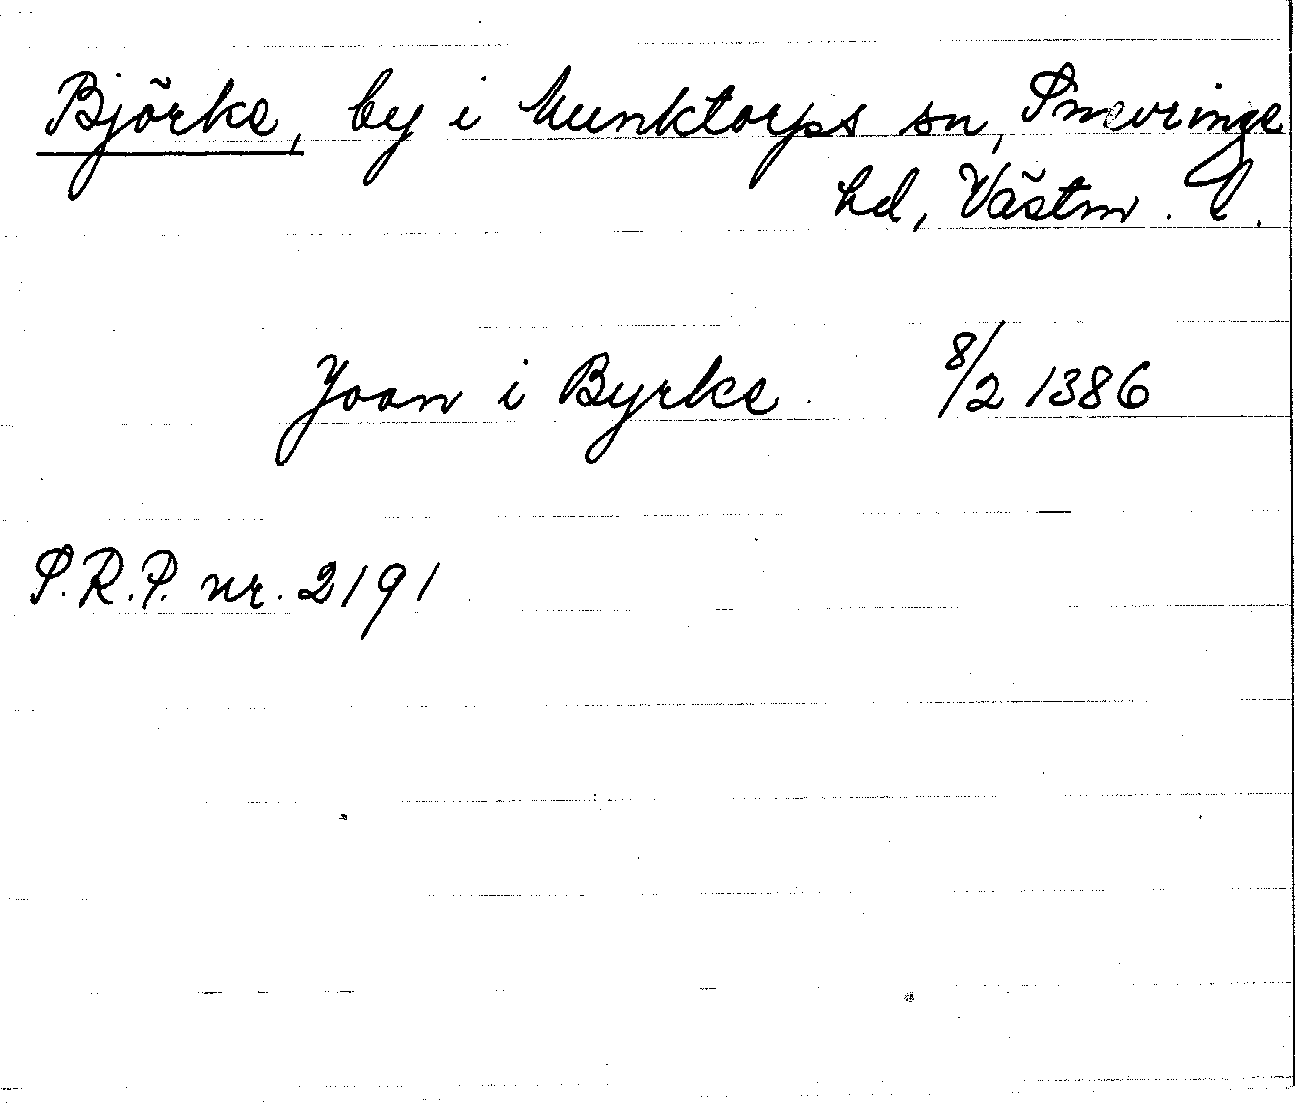 Björke, by i Munktorps sn, Snevringe
hd, Västm. l.
Joan i Byrke 8/2 1386
S.R.P. nr. 2191